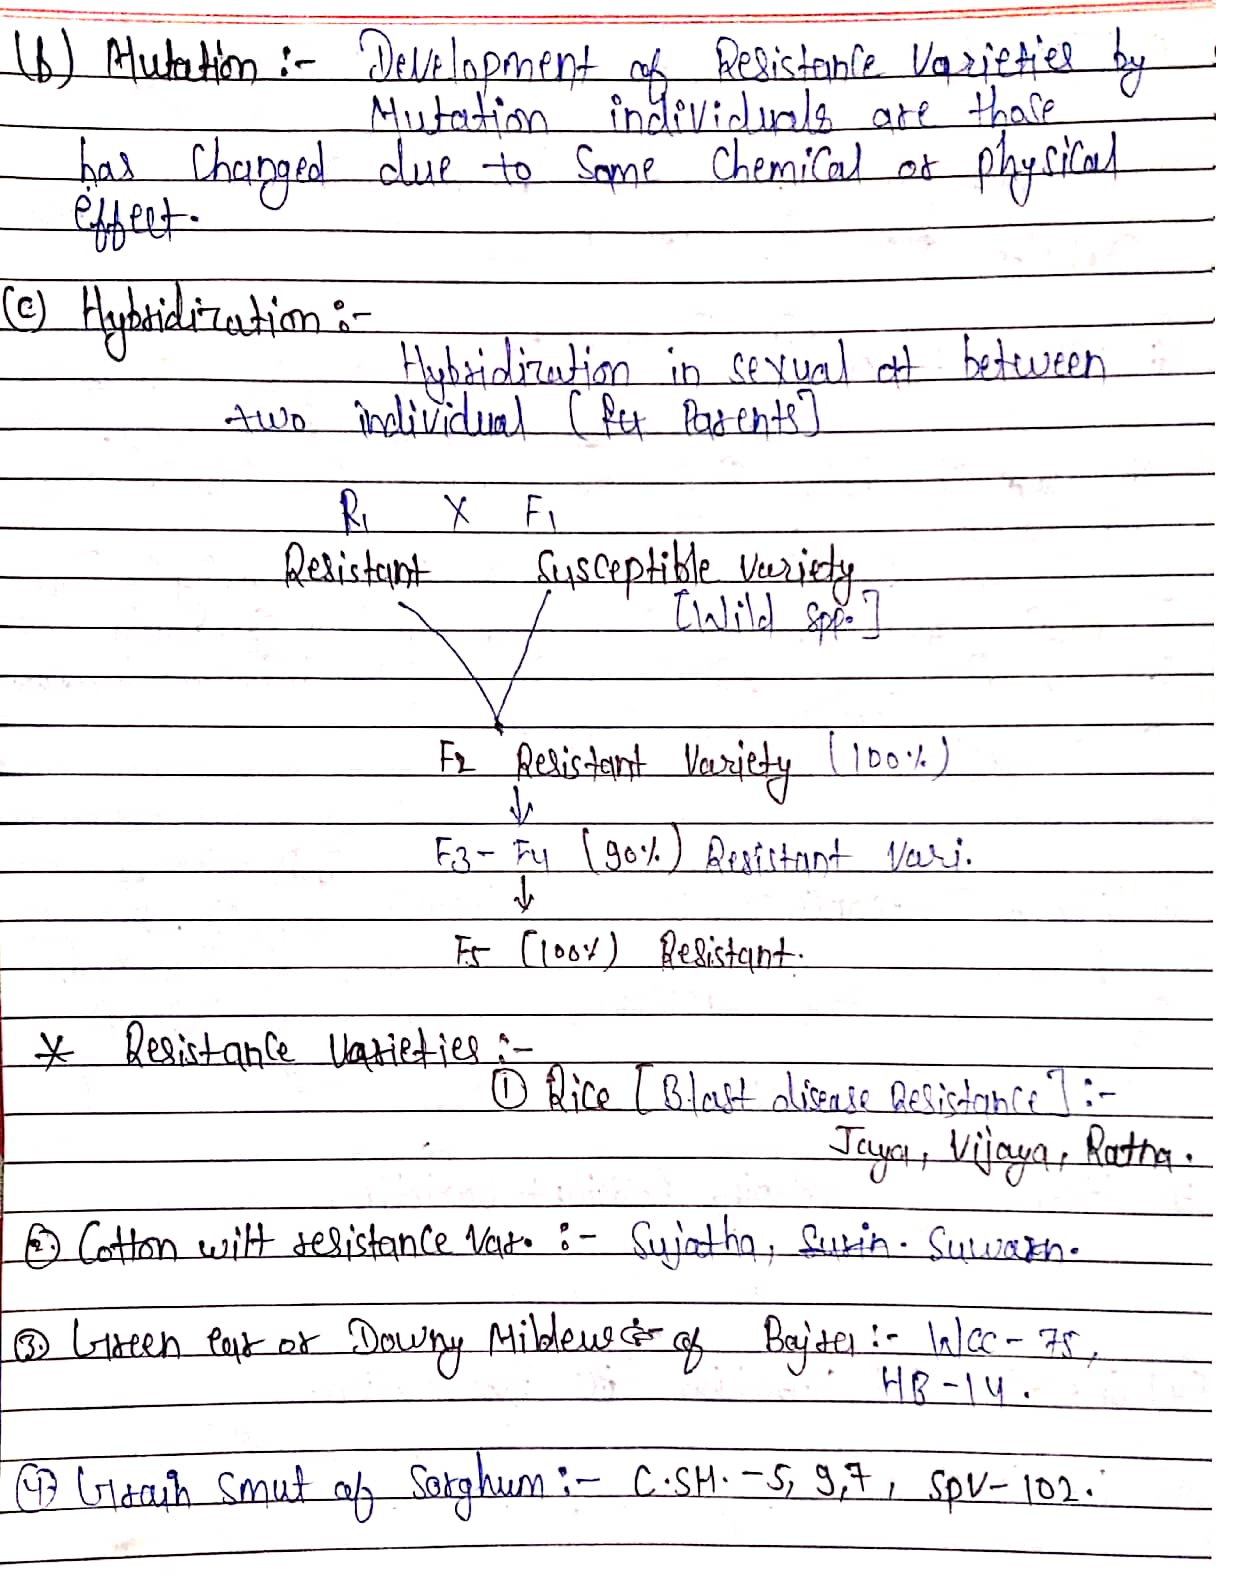 (b) Mutation :- Development of Resistance Varieties by
Mutation individuals are those
has changed due to Some Chemical or physical
effect.
(c) Hybridization :-
Hybridization in sexual att between
two individual ( Per Parents]
R1 X F1
Resistant Susceptible variety
[Wild Spp.]
F2 Resistant Variety (100%)
↓
F3 - F4 (90%) Resistant Vari.
↓
F5 (100%) Resistant.
* Resistance Varieties :-
① Rice [Blast disease Resistance] :-
Jaya, Vijaya, Ratha.
②. Cotton wilt resistance Var. :- Sujatha, Suvin. Suwarn.
③. Green Ear or Downy Mildew of Bajra :- WCC - 75,
HB - 14.
④. Grain Smut of Sorghum :- C.SH. - 5, 9, 7, SPV - 102.